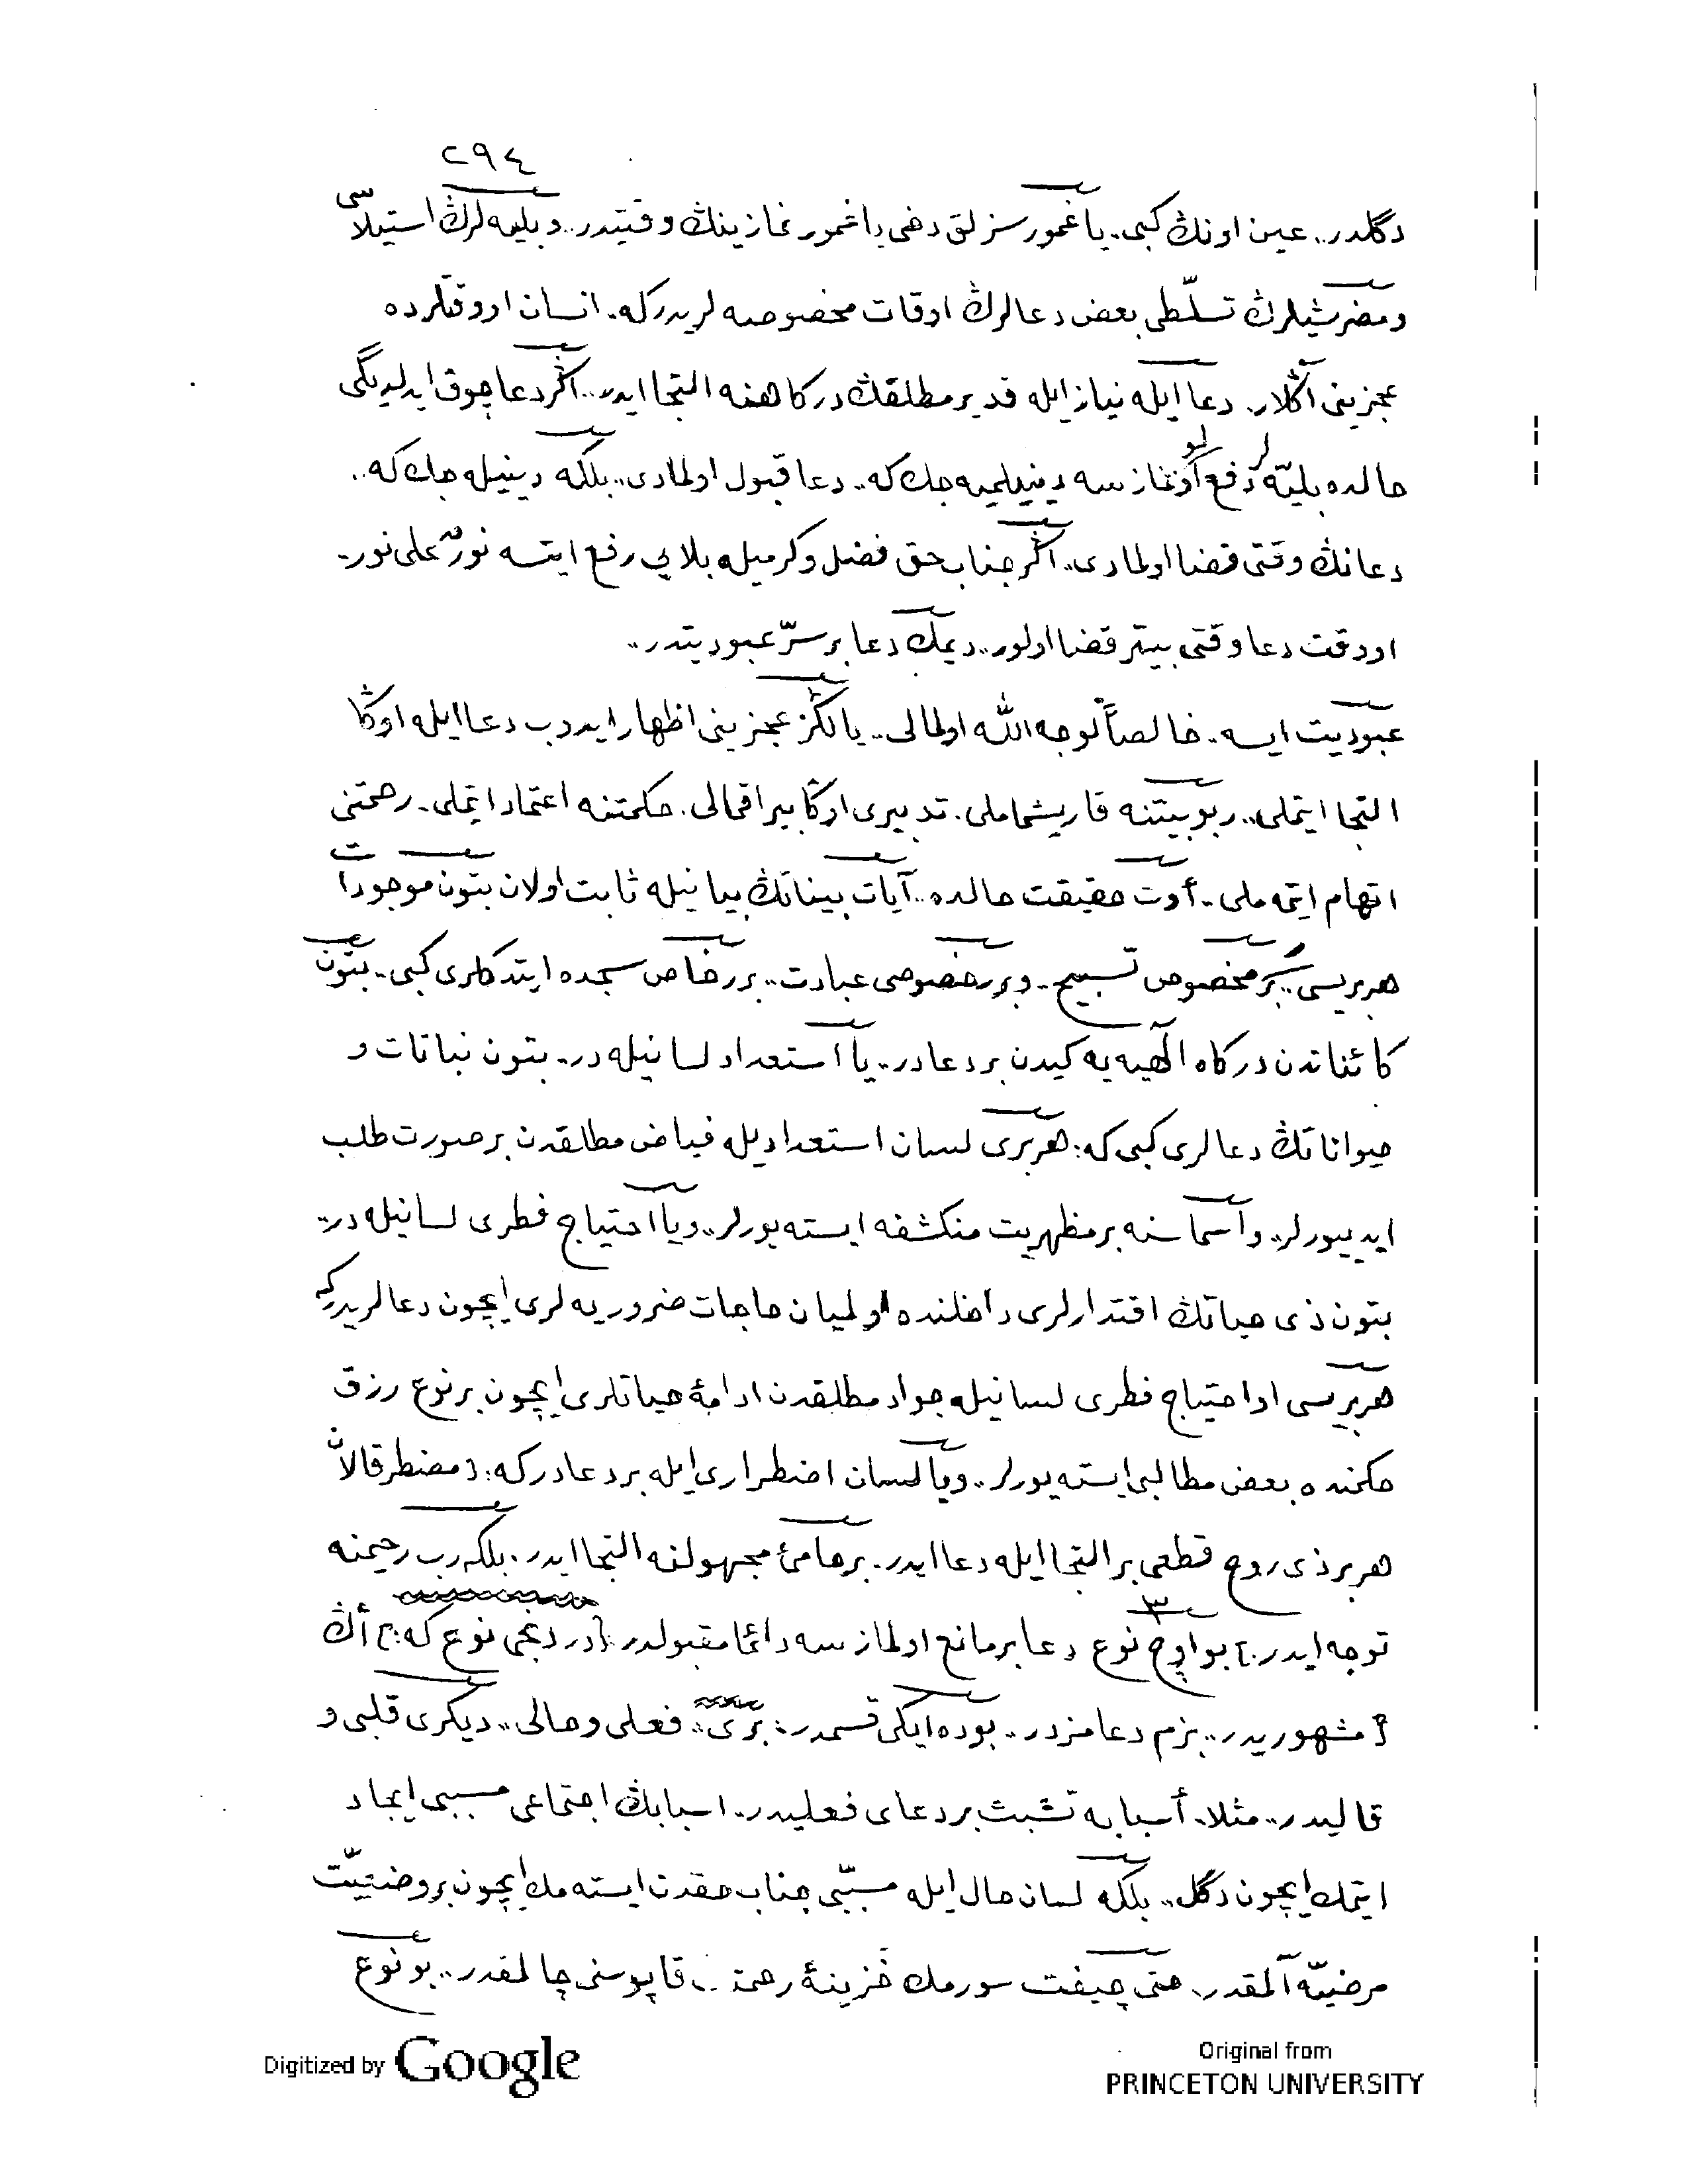 ٢٩٤
دگلدر.. عين اونڭ كبى. ياغمورسزلق دخى ياغمور نمازينڭ وقتيدر.. و بليه لرڭ استيلاسى
و مضر شيلرڭ تسلّطى بعض دعالرڭ اوقات مخصوصه لريدركه. انسان او وقتلرده
عجزينى آڭلار. دعا ايله نياز ايله قدير مطلقڭ دركاهنه التجا ايدر.. اڭر دعا چوق ايدلديگى
حالده بليّه لر دفع اولونمازسه دينيلميه جك كه.. دعا قبول اولمادى.. بلكه دينيله جك كه..
دعانڭ وقتى قضا اولمادى.. اڭر جناب حق فضل و كرميله بلايى رفع ايتسه نورٌ على نور.
او وقت دعا وقتى بيتر قضا اولور.. ديمك دعا بر سرّ عبوديتدر..
عبوديت ايسه. خالصاً لوجه الله اولمالى.. يالڭز عجزينى اظهار ايدوب دعا ايله اوڭا
التجا ايتملى.. ربوبيتنه قاريشماملى. تدبيرى اوڭا بيراقمالى. حكمتنه اعتماد ايتملى. رحمتنى
اتهام ايتمه ملى. أوت حقيقت حالده.. آيات بيناتڭ بيانيله ثابت اولان بتون موجودات
هر بريسى.. برر مخصوص تسبيح. و برر خصوصى عبادت.. برر خاص سجده ايتدكلرى كبى. بتون
كائناتدن دركاه الٓهيه يه كيدن بر دعادر.. يا استعداد لسانيله در.. بتون نباتات و
حيواناتڭ دعالرى كبى كه: هر برى لسان استعداديله فياض مطلقدن بر صورت طلب
ايدييورلر. و أسماسنه بر مظهريت منكشفه ايسته يورلر.. ويا احتياج فطرى لسانيله در..
بتون ذى حياتڭ اقتدارلرى داخلنده اولميان حاجات ضروريه لرى ايچون دعالريدركه
هر بريسى او احتياج فطرى لسانيله جواد مطلقدن ادامۀ حياتلرى ايچون بر نوع رزق
حكمنده بعض مطالبى ايسته يورلر.. ويا لسان اضطرارى ايله بر دعادركه: مضطر قالان
هر بر ذى روح قطعى بر التجا ايله دعا ايدر. بر حامئ مجهولنه التجا ايدر. بلكه رب رحيمنه
توجه ايدر.] بو اوچ ٣ نوع دعا بر مانع اولمازسه دائما مقبولدر [دردنجى نوع كه:] أڭ
مشهوريدر.. بزم دعامزدر.. بوده ايكى قسمدر: برى.. فعلى و حالى.. ديكرى قلبى و
قاليدر.. مثلا. أسبابه تشبث بر دعاى فعليدر. اسبابڭ اجتماعى مسببى ايجاد
ايتمك ايچون دگل.. بلكه لسان حال ايله مسبّبى جناب حقدن ايسته مك ايچون بر وضعيّت
مرضيّه آلمقدر. حتى چيفت سورمك خزينۀ رحمت قاپوسنى چالمقدر.. بو نوع
Digitized by Google
Original from
PRINCETON UNIVERSITY